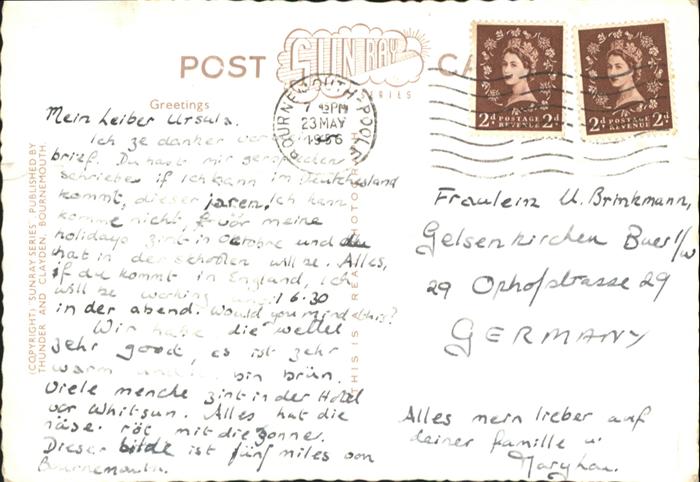 POST CA
SUN RAY
SERIES
Greetings
BOURNEMOUTH-POOLE
PM
23 MAY
1956
2d POSTAGE REVENUE 2d
2d POSTAGE REVENUE 2d
(COPYRIGHT) "SUNRAY SERIES" PUBLISHED BY
THUNDER AND CLAYDEN, BOURNEMOUTH.
THIS IS A REAL PHOTOGRAPH
Mein Leiber Ursula.
Ich ze danker
brief. Du hast mir
schriebe if ich kann im Deutchesland
kommt, dieser jaren. Ich kann
komme nicht, fuör meine
holidays zint in Octobre und du
hat in der schoolen will be. Alles,
if du kommt in England, ich
will be working until 6.30
in der abend. Would you mind this?
Wir habe die wettel
zehr good, es ist zehr
warm bin brün.
Viele menche zint in der Hotel
vor Whitsun. Alles hat die
näse röt mit die zonner.
Dieser bilde ist fünf miles von
Bournemouth.
Fraulein U. Brinkmann,
Gelsenkirchen Buer i/w
29 Ophofstrasse 29
GERMANY
Alles mein lieber auf
deiner familie u